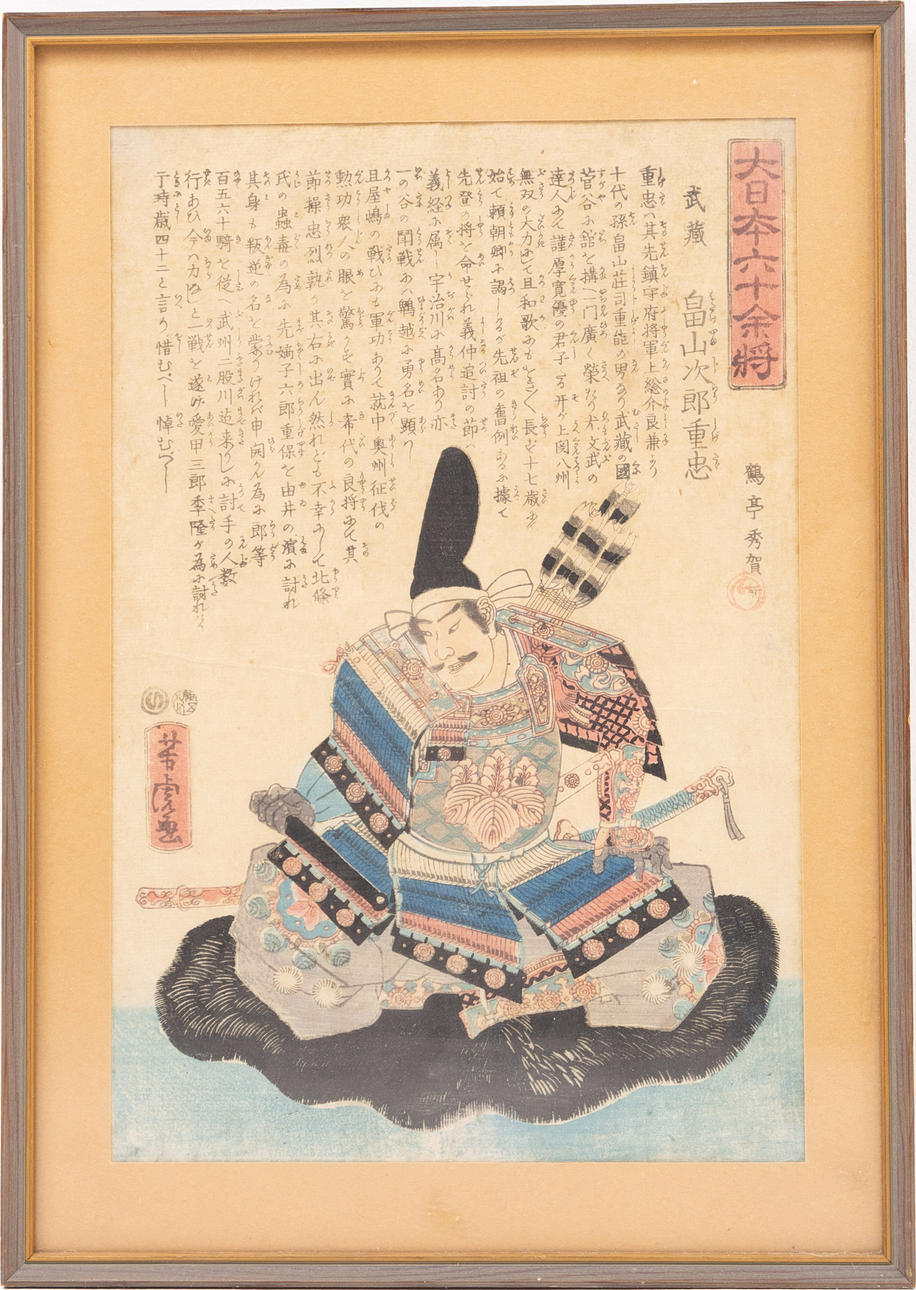 大日本六十余将
武藏
畠山次郎重忠
鶴亭秀賀
重忠ハ其先鎮守府将軍上総介良兼より
十代の孫畠山荘司重能の男なり武藏の國
菅谷に舘を搆へ一門廣く榮たり尤文武の
達人にて謹厚寛優の君子なる所から関八州
無双の大力にして且和歌にもよし長ず十七歳に
始て頼朝卿に謁しるが先祖の舊例に據て
先登の将を命せられ義仲追討の節
義経に属し宇治川に高名あり亦
一の谷の閗戦にハ鵯越に勇名を顕ハし
且屋嶋の戦ひにも軍功ありて就中奥州征伐の
勲功衆人の眼を驚かせ實に希代の良将にて其
節操忠烈孰か其右に出ん然れども不幸にして北條
氏の蟲毒の為に先嫡子六郎重保を由井の濱に討れ
其身も叛逆の名を蒙りけれバ申開かん為に郎等
百五六十騎を從へ武州二股川迠来りしに討手の人数に
行あひ今ハ力なしと一戦を遂げ愛甲三郎季隆が為に討れける
于時歳四十二と言り惜むべし悼むべし
芳虎画